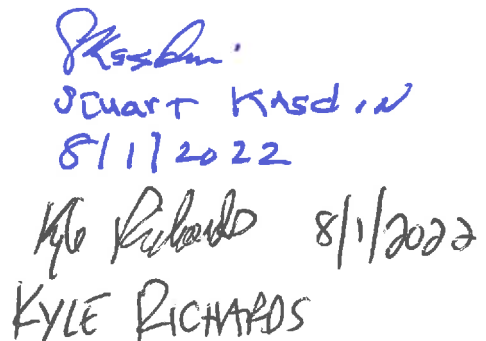 SKasdin
Stuart Kasdin
8/1/2022
Kyle Richards 8/1/2022
KYLE RICHARDS